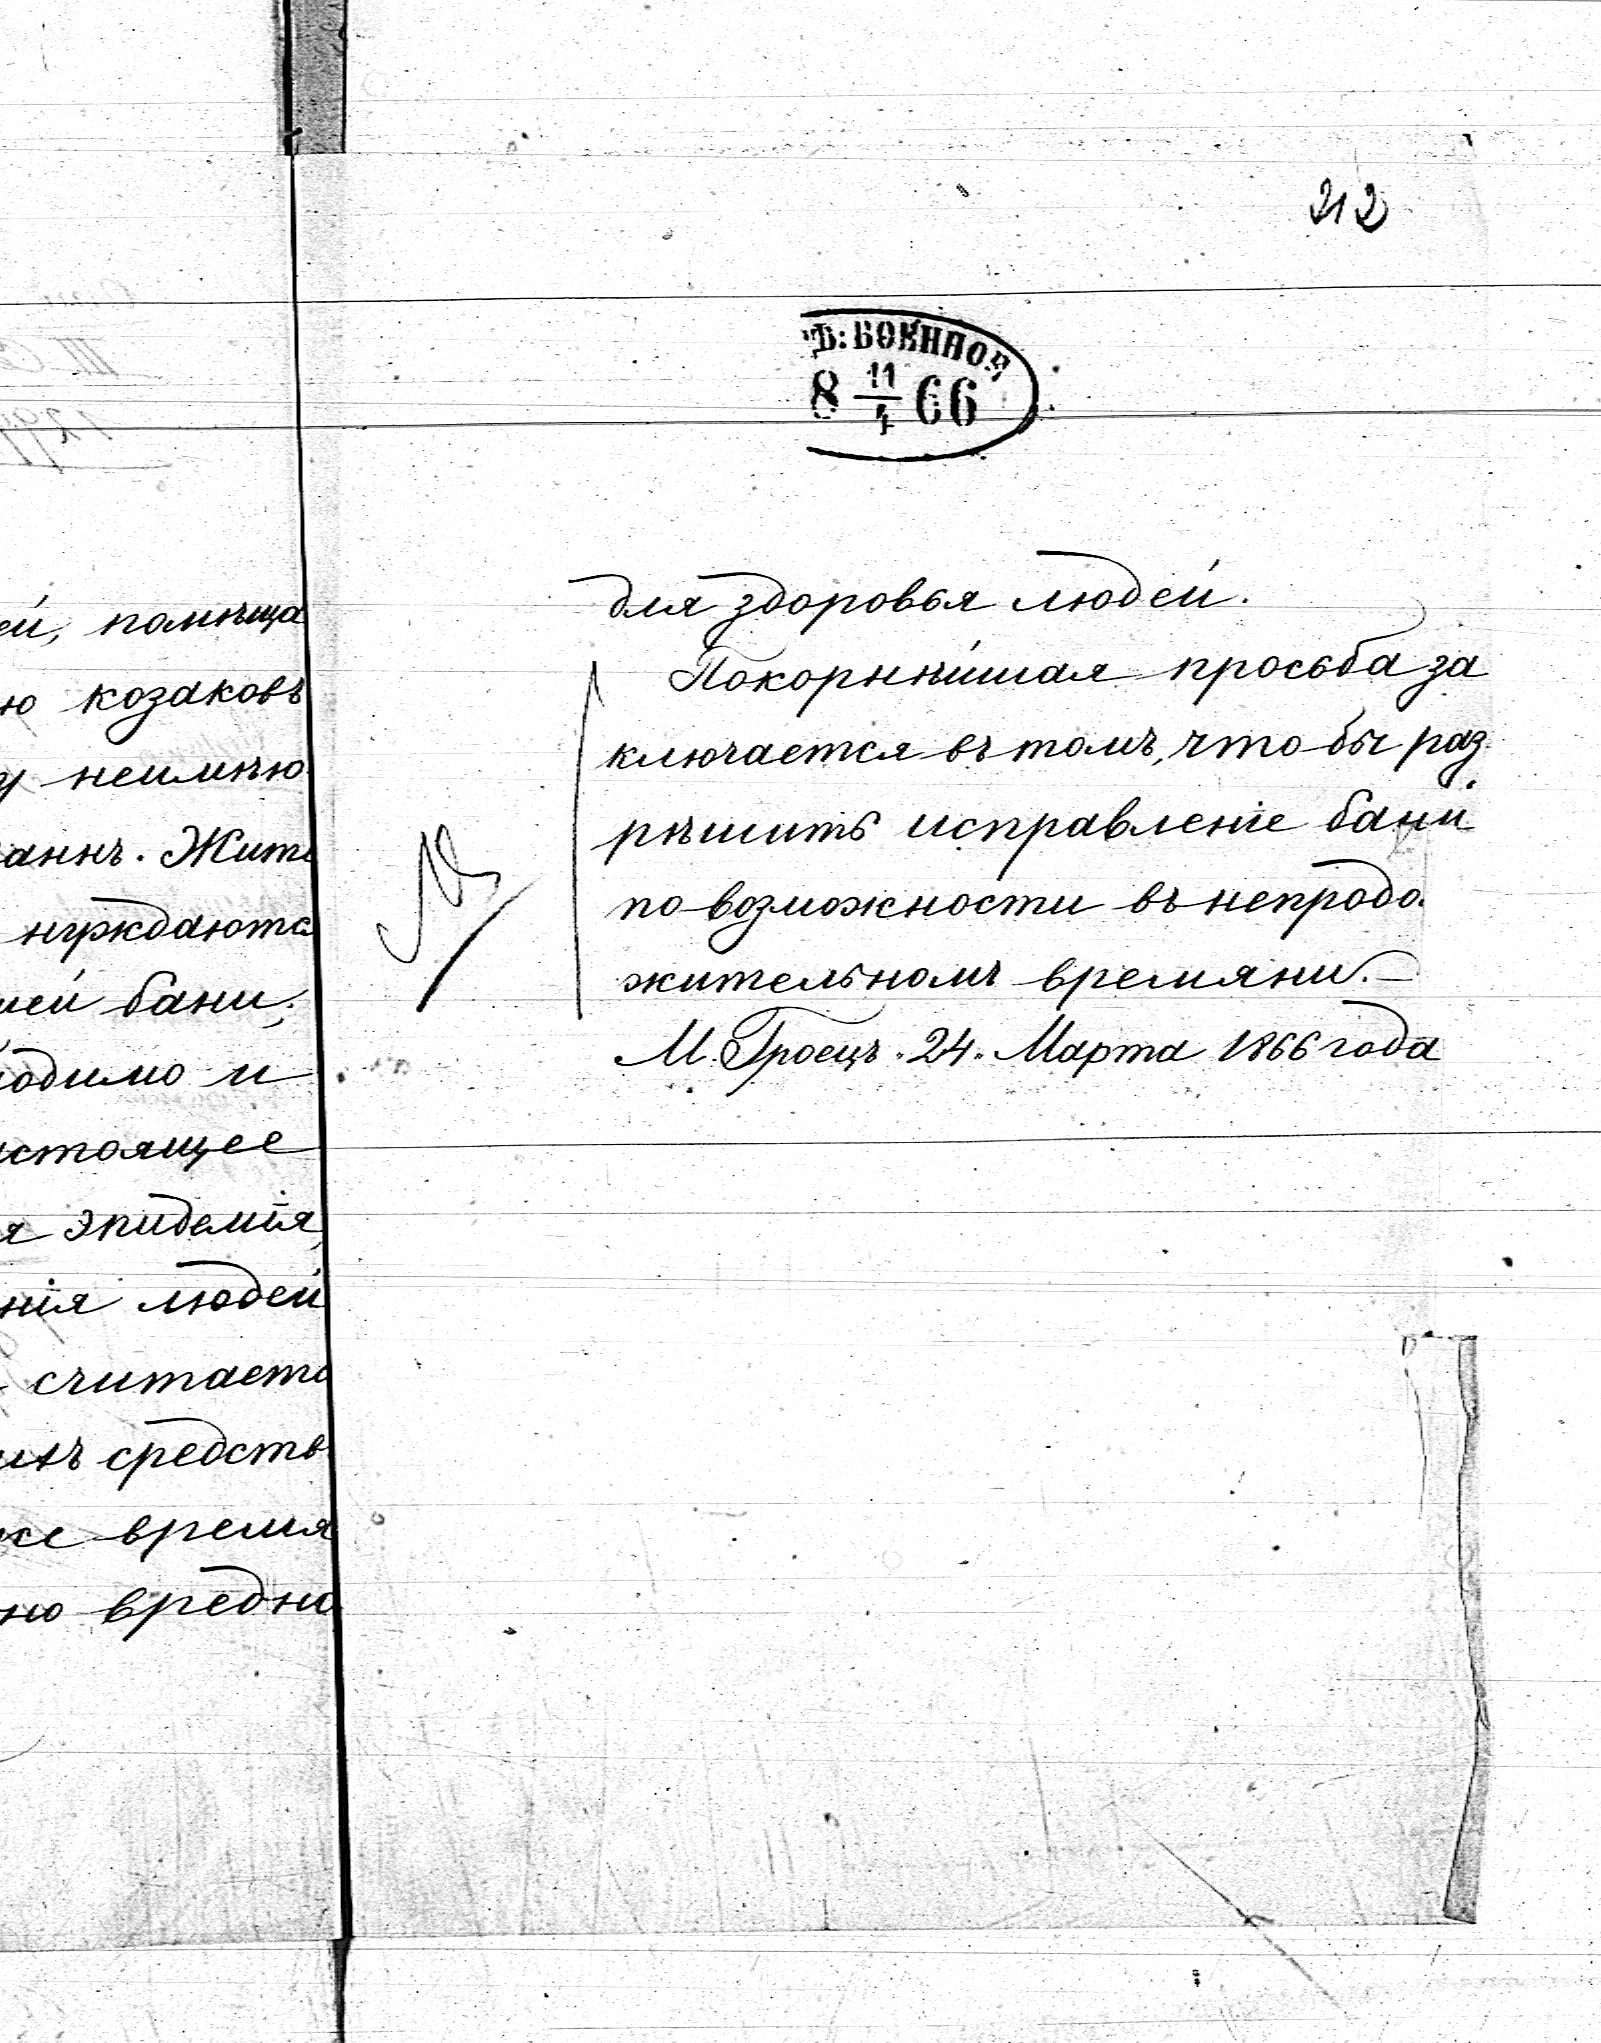 212
Ъ: ВОЕННОЯ
8 11/4 66
ей, помѣща
ю козаковъ
у неимѣю
аннъ. Жите
нуждаются
шей бани;
одимо и
астоящее
я эпидемія,
нія людей
считаетс
средств
же время
но вредно
для здоровья людей.
Покорнѣйшая просьба за
ключается въ томъ, что бы раз
рѣшить исправленіе бани
по возможности въ непродо.
жительномъ времяни.
М. Гроецъ. 24. Марта 1866 года